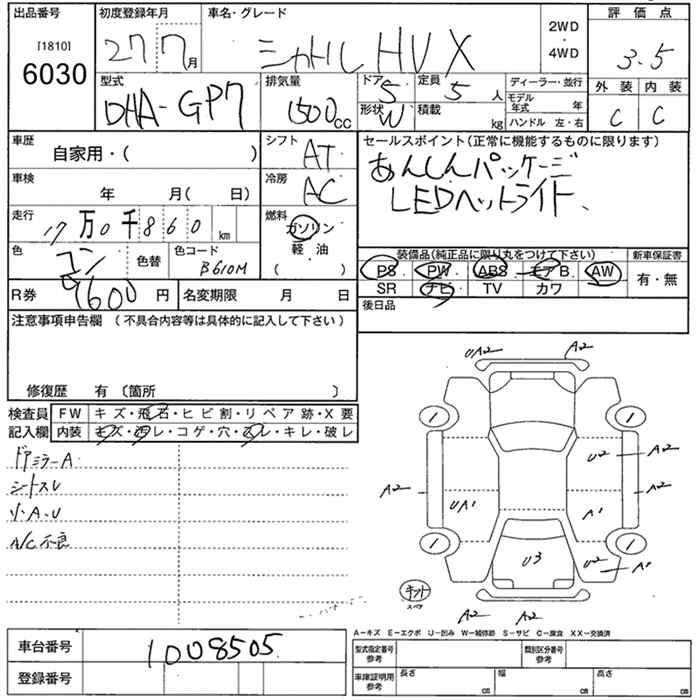 出品番号 初度登録年月 車名・グレード 2WD・4WD 評価点
[1810] 6030 27 7月 シャトル HV X 3.5
型式 排気量 ドア 定員 ディーラー・並行 外装 内装
DHA-GP7 1500cc 5 5人 モデル年式 年 C C
形状 W 積載 kg ハンドル 左・右
車歴 自家用・( ) シフト AT セールスポイント(正常に機能するものに限ります)
車検 年 月( 日) 冷房 AC あんしんパッケージ
LEDヘットライト、
走行 17万0千860km 燃料 ガソリン 軽油 ( )
色 コン 色替 色コード B610M
装備品(純正品に限り丸をつけて下さい) 新車保証書
PS PW ABS エアB AW 有・無
SR ナビ TV カワ
R券 9600円 名変期限 月 日 後日品
注意事項申告欄 (不具合内容等は具体的に記入して下さい)
修復歴 有 〔箇所 〕
検査員 FW キズ・飛石・ヒビ割・リペア跡・X要
記入欄 内装 キズ・汚レ・コゲ・穴・スレ・キレ・破レ
ドアミラーA
シートスレ
小A.U
A/C不良
UA2 A2
1 1
U2 A2
A2 UA1 A1 A2
1 1
U3 U2 A1
キット
スペア
A2 A2
A-キズ E-エクボ U-凹み W-補修跡 S-サビ C-腐食 XX-交換済
車台番号 1008505
登録番号
型式指定番号 参考 類別区分番号 参考
車庫証明用 参考 長さ cm 幅 cm 高さ cm